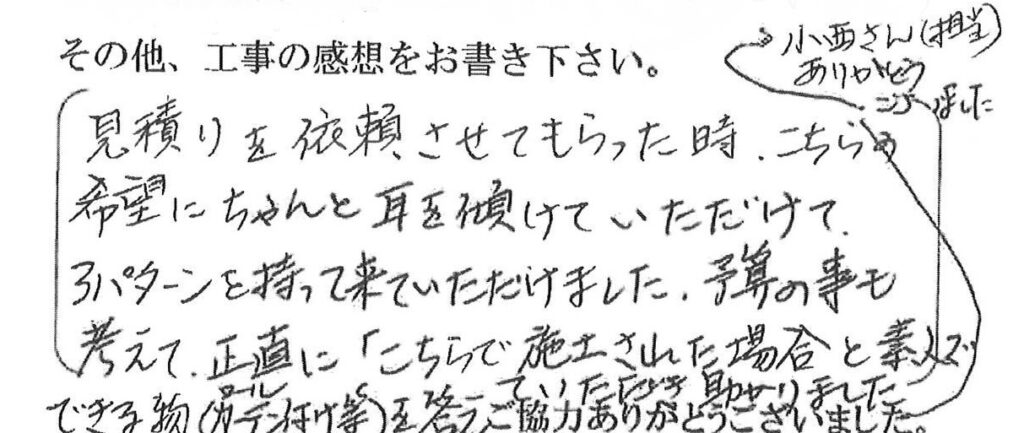 その他、工事の感想をお書き下さい。
見積りを依頼させてもらった時、こちらの
希望にちゃんと耳を傾けていただけて、
3パターンを持って来ていただけました。予算の事も
考えて、正直に「こちらで施工された場合と素人で
できる物(カーテンレール付け等)を答え
ていただき助かりました
ご協力ありがとうございました。
小西さん(担当)
ありがとう
ございました